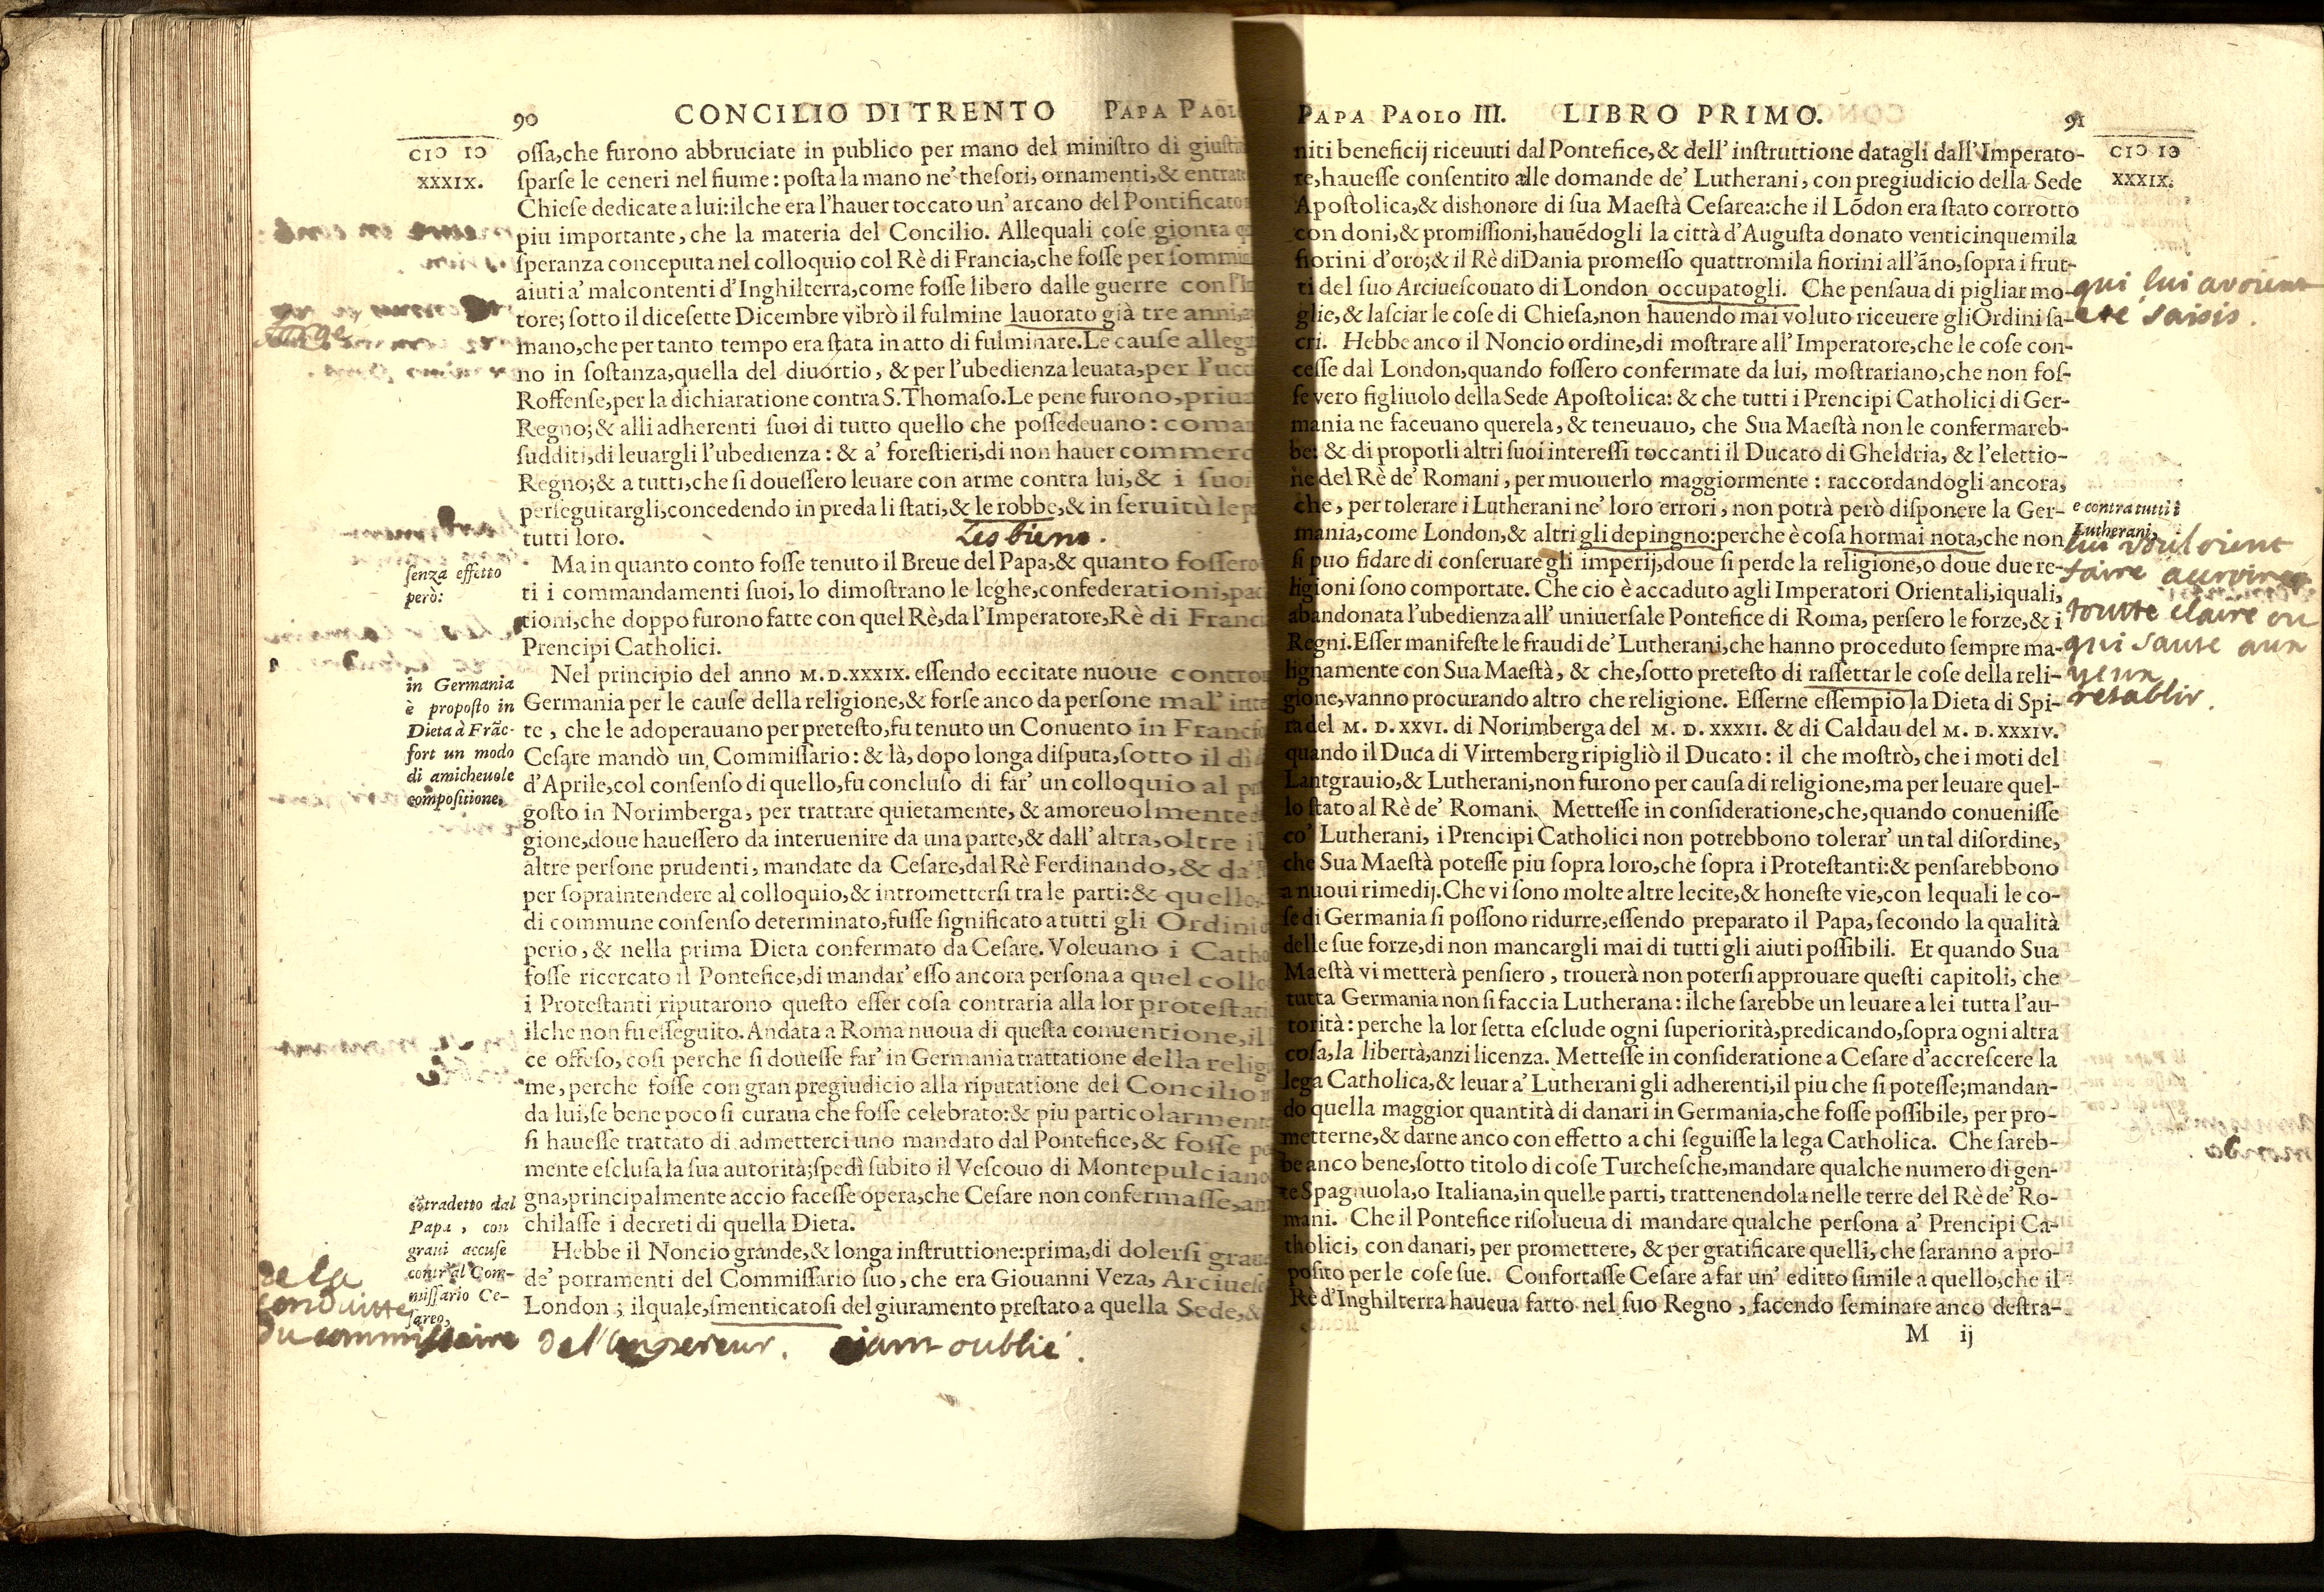 90 CONCILIO DI TRENTO PAPA PAOL
CIↃ IↃ
XXXIX.
ossa,che furono abbruciate in publico per mano del ministro di
sparse le ceneri nel fiume: posta la mano ne' thesori, ornamenti,& entrate
Chiese dedicate a lui:ilche era l'hauer toccato un' arcano del Pontificato
piu importante, che la materia del Concilio. Allequali cose gionta
speranza conceputa nel colloquio col Rè di Francia,che fosse per
aiuti a' malcontenti d'Inghilterra,come fosse libero dalle guerre
tore; sotto il dicesette Dicembre vibrò il fulmine lauorato già tre anni,
mano,che per tanto tempo era stata in atto di fulminare.Le cause
no in sostanza,quella del diuortio, & per l'ubedienza leuata,per
Roffense,per la dichiaratione contra S.Thomaso.Le pene furono,
Regno;& alli adherenti suoi di tutto quello che possedeuano:
sudditi,di leuargli l'ubedienza: & a' forestieri,di non hauer
Regno;& a tutti,che si douessero leuare con arme contra lui,& i
perseguitargli,concedendo in preda li stati,& le robbe,& in seruitù
tutti loro.
Les biens.
senza effetto
però:
Ma in quanto conto fosse tenuto il Breue del Papa,& quanto fossero
ti i commandamenti suoi, lo dimostrano le leghe,confederationi,
tioni,che doppo furono fatte con quel Rè,da l'Imperatore,Rè di
Prencipi Catholici.
in Germania
è proposto in
Dieta à Frãc-
fort un modo
di amicheuole
compositione,
Nel principio del anno M.D.XXXIX. essendo eccitate nuoue
Germania per le cause della religione,& forse anco da persone mal'
te, che le adoperauano per pretesto,fu tenuto un Conuento in
Cesare mandò un Commissario: & là, dopo longa disputa,sotto il
d'Aprile,col consenso di quello,fu concluso di far' un colloquio al
gosto in Norimberga, per trattare quietamente, & amoreuolmente
gione,doue hauessero da interuenire da una parte,& dall' altra,oltre
altre persone prudenti, mandate da Cesare,dal Rè Ferdinando,& da
per sopraintendere al colloquio,& intromettersi tra le parti:& quello,
di commune consenso determinato,fusse significato a tutti gli
perio, & nella prima Dieta confermato da Cesare. Voleuano i
fosse ricercato il Pontefice,di mandar' esso ancora persona a quel
i Protestanti riputarono questo esser cosa contraria alla lor
ilche non fu esseguito. Andata a Roma nuoua di questa conuentione,il
ce offeso, cosi perche si douesse far' in Germania trattatione della
me, perche fosse con gran pregiudicio alla riputatione del Concilio
da lui,se bene poco si curaua che fosse celebrato:& piu
si hauesse trattato di admetterci uno mandato dal Pontefice, & fosse
mente esclusa la sua autorità;spedì subito il Vescouo di Montepulciano
gna,principalmente accio facesse opera,che Cesare non confermasse,
chilasse i decreti di quella Dieta.
cõtradetto dal
Papa, con
graui accuse
contr'al Com-
missario Ce-
sareo,
Hebbe il Noncio grande,& longa instruttione:prima,di dolersi
de' portamenti del Commissario suo, che era Giouanni Veza,
London; ilquale,smenticatosi del giuramento prestato a quella Sede,&
de la
conduitte
du commissaire de l'empereur. aiant oublié.
PAPA PAOLO III. LIBRO PRIMO. 91
CIↃ IↃ
XXXIX.
niti beneficij riceuuti dal Pontefice,& dell' instruttione datagli dall'Imperato-
re,hauesse consentito alle domande de' Lutherani, con pregiudicio della Sede
Apostolica,& dishonore di sua Maestà Cesarea:che il Lõdon era stato corrotto
con doni,& promissioni,hauẽdogli la città d'Augusta donato venticinquemila
fiorini d'oro;& il Rè di Dania promesso quattromila fiorini all'ãno,sopra i frut-
ti del suo Arciuescouato di London occupatogli. Che pensaua di pigliar mo-
glie,& lasciar le cose di Chiesa,non hauendo mai voluto riceuere gli Ordini sa-
cri. Hebbe anco il Noncio ordine,di mostrare all' Imperatore,che le cose con-
cesse dal London,quando fossero confermate da lui, mostrariano,che non fos-
se vero figliuolo della Sede Apostolica: & che tutti i Prencipi Catholici di Ger-
mania ne faceuano querela, & teneuauo, che Sua Maestà non le confermareb-
be: & di proporli altri suoi interessi toccanti il Ducato di Gheldria, & l'elettio-
ne del Rè de' Romani, per muouerlo maggiormente: raccordandogli ancora,
che, per tolerare i Lutherani ne' loro errori, non potrà però disponere la Ger-
mania,come London,& altri gli depingno:perche è cosa hormai nota,che non
si puo fidare di conseruare gli imperij,doue si perde la religione,o doue due re-
ligioni sono comportate. Che cio è accaduto agli Imperatori Orientali,iquali,
abandonata l'ubedienza all' uniuersale Pontefice di Roma, persero le forze,& i
Regni.Esser manifeste le fraudi de' Lutherani,che hanno proceduto sempre ma-
lignamente con Sua Maestà, & che,sotto pretesto di rassettar le cose della reli-
gione,vanno procurando altro che religione. Esserne essempio la Dieta di Spi-
ra del M. D. XXVI. di Norimberga del M. D. XXXII. & di Caldau del M. D. XXXIV.
quando il Duca di Virtemberg ripigliò il Ducato: il che mostrò, che i moti del
Lantgrauio,& Lutherani,non furono per causa di religione,ma per leuare quel-
lo stato al Rè de' Romani. Mettesse in consideratione,che,quando conuenisse
co' Lutherani, i Prencipi Catholici non potrebbono tolerar' un tal disordine,
che Sua Maestà potesse piu sopra loro,che sopra i Protestanti:& pensarebbono
a nuoui rimedij.Che vi sono molte altre lecite,& honeste vie,con lequali le co-
se di Germania si possono ridurre,essendo preparato il Papa, secondo la qualità
delle sue forze,di non mancargli mai di tutti gli aiuti possibili. Et quando Sua
Maestà vi metterà pensiero, trouerà non potersi approuare questi capitoli, che
tutta Germania non si faccia Lutherana: ilche sarebbe un leuare a lei tutta l'au-
torità: perche la lor setta esclude ogni superiorità,predicando,sopra ogni altra
cosa,la libertà,anzi licenza. Mettesse in consideratione a Cesare d'accrescere la
lega Catholica,& leuar a' Lutherani gli adherenti,il piu che si potesse;mandan-
do quella maggior quantità di danari in Germania,che fosse possibile, per pro-
metterne,& darne anco con effetto a chi seguisse la lega Catholica. Che sareb-
be anco bene,sotto titolo di cose Turchesche,mandare qualche numero di gen-
te Spagnuola,o Italiana,in quelle parti, trattenendola nelle terre del Rè de' Ro-
mani. Che il Pontefice risolueua di mandare qualche persona a' Prencipi Ca-
tholici, con danari, per promettere, & per gratificare quelli, che saranno a pro-
posito per le cose sue. Confortasse Cesare a far un' editto simile a quello,che il
Rè d'Inghilterra haueua fatto nel suo Regno, facendo seminare anco destra-
M ij
qui lui avoient
eté saisis.
e contra tutti i
Lutherani,
lui vouloient
faire
toutte claire ou
qui saute aux
yeux
retablir.